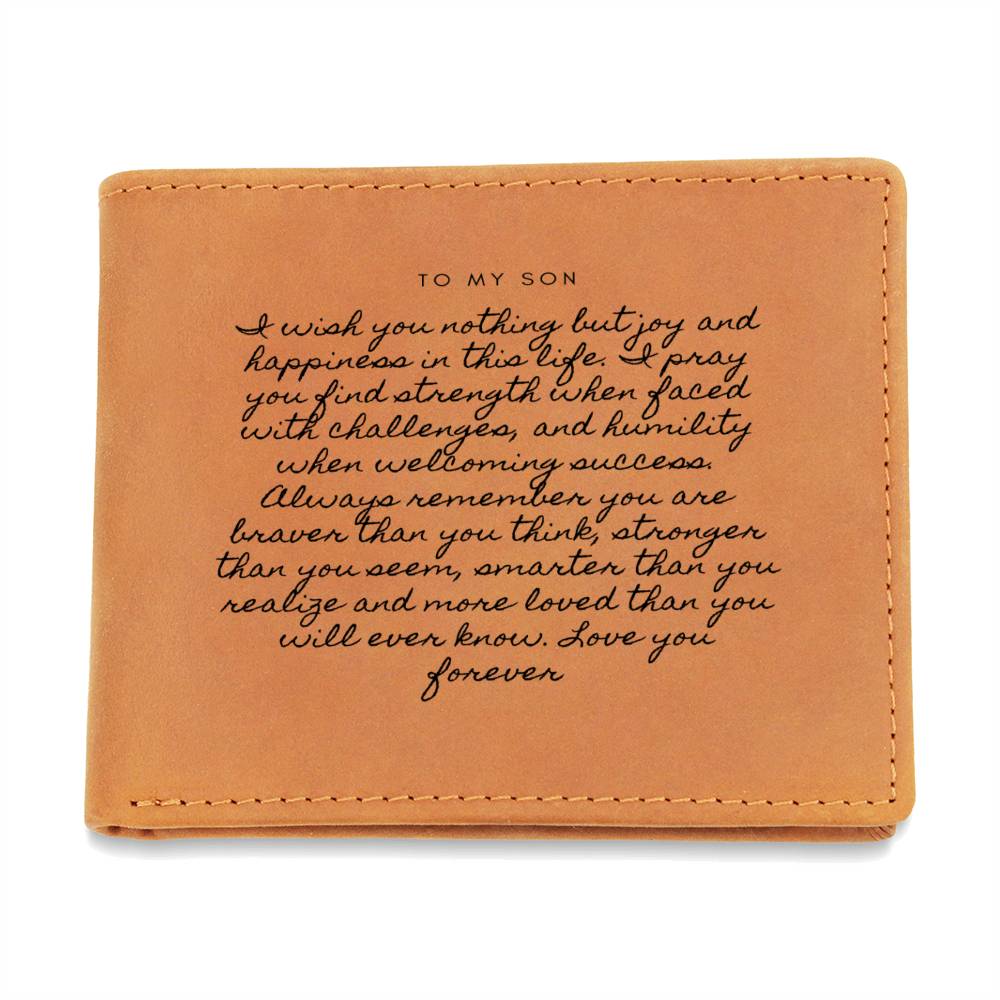 TO MY SON
I wish you nothing but joy and
happiness in this life. I pray
you find strength when faced
with challenges, and humility
when welcoming success.
Always remember you are
braver than you think, stronger
than you seem, smarter than you
realize and more loved than you
will ever know. Love you
forever